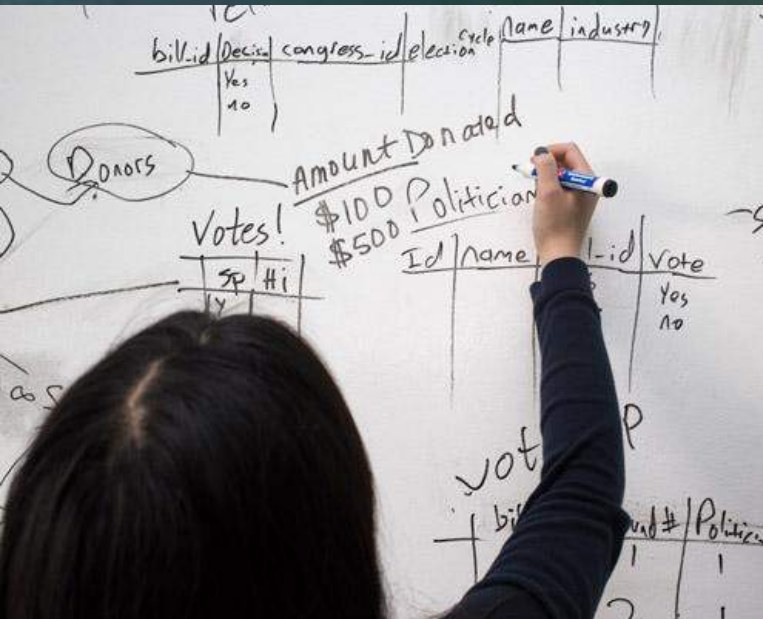 bill_id Decision congress_id election cycle name industry
Yes
no
Donors
Amount Donated
$100
$500
Politician
Votes!
Sp Hi
Y
Id name _id Vote
Yes
no
as
vot P
bil und # Politic
1 1
2 1